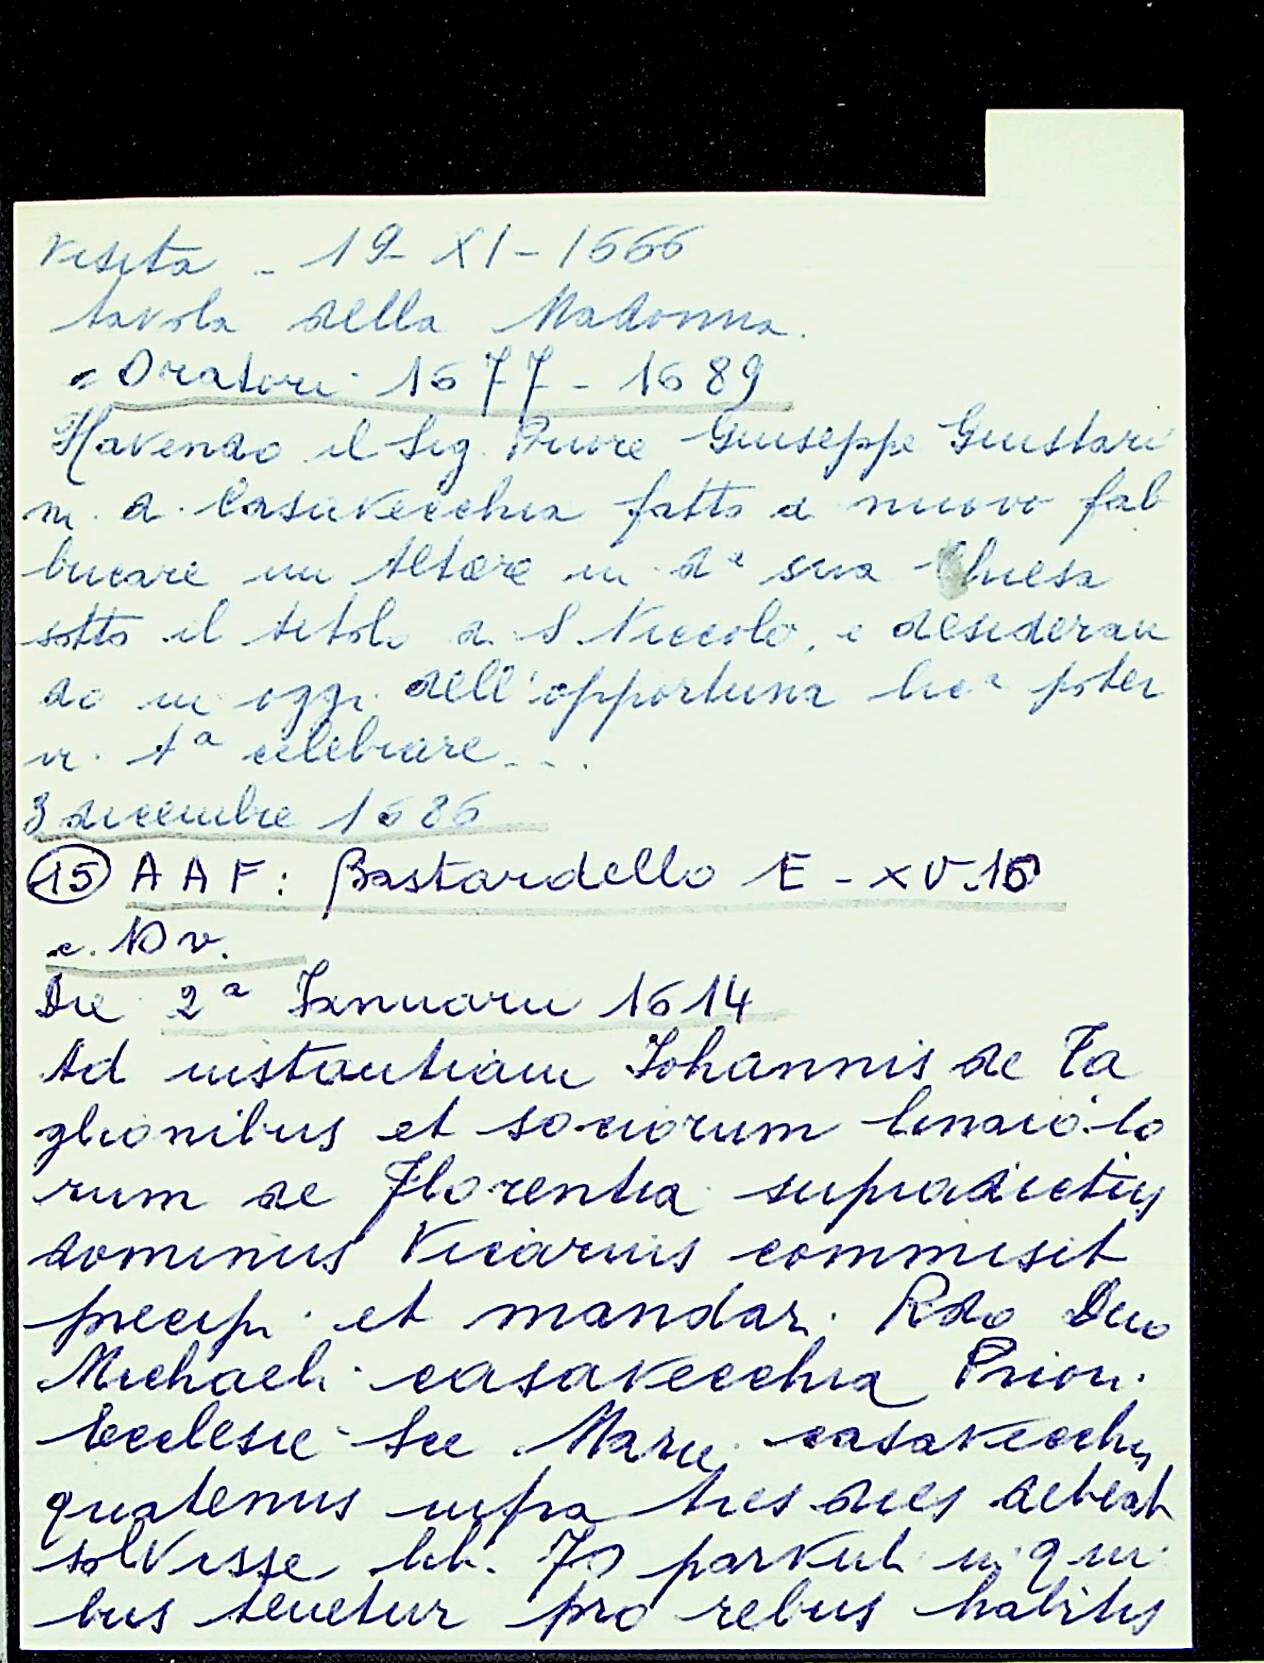 Visita - 19 - XI - 1666
tavola della Madonna.
Oratori 1677 - 1689
Havendo il Sig. Priore Giuseppe Giustari
ni di Casavecchia fatto di nuovo fab
bricare un Altare in dª sua Chiesa
sotto il titolo di S Niccolò, e desideran
do in oggi dell'opportuna licª poter
vi tª celebrare...
3 dicembre 1686
(15) A A F: Bastardello E - XV.16
c. 10 v.
Die 2ª Januarii 1614
Ad instantiam Johannis de Ta
glionibus et sociorum linaiolo
rum de Florentia supradictus
dominus Vicarius commisit
precipi et mandari Rdo Dno
Michaeli casavecchia Priori
Ecclesie See Marie casavecchie
quatenus infra tres dies debeat
solvisse lib. 70 parvul. in qui
bus tenetur pro rebus habitis